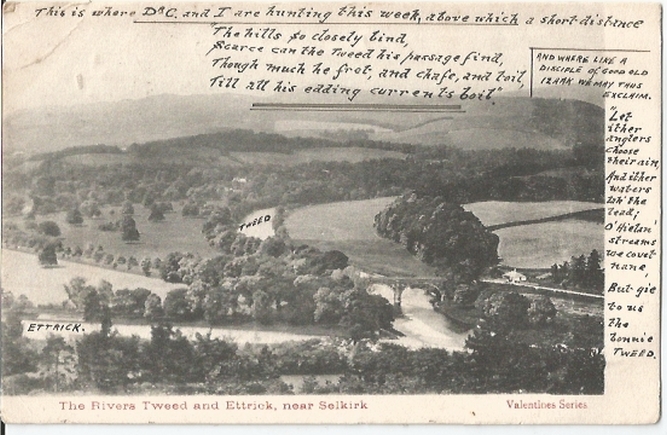 This is where Dr C. and I are hunting this week, above which a short distance
"The hills so closely bind,
Scarce can the Tweed his passage find,
Though much he fret, and chafe, and toil,
Till all his edding currents boil"
AND WHERE LIKE A
DISCIPLE of GOOD OLD
IZAAK WE MAY THUS
EXCLAIM.
"Let
ither
anglers
choose
their ain,
And ither
waters
tak' the
lead;
O' Hielan'
streams
we covet
nane,
But gie
to us
the
bonnie
TWEED.
TWEED
ETTRICK.
The Rivers Tweed and Ettrick, near Selkirk
Valentines Series